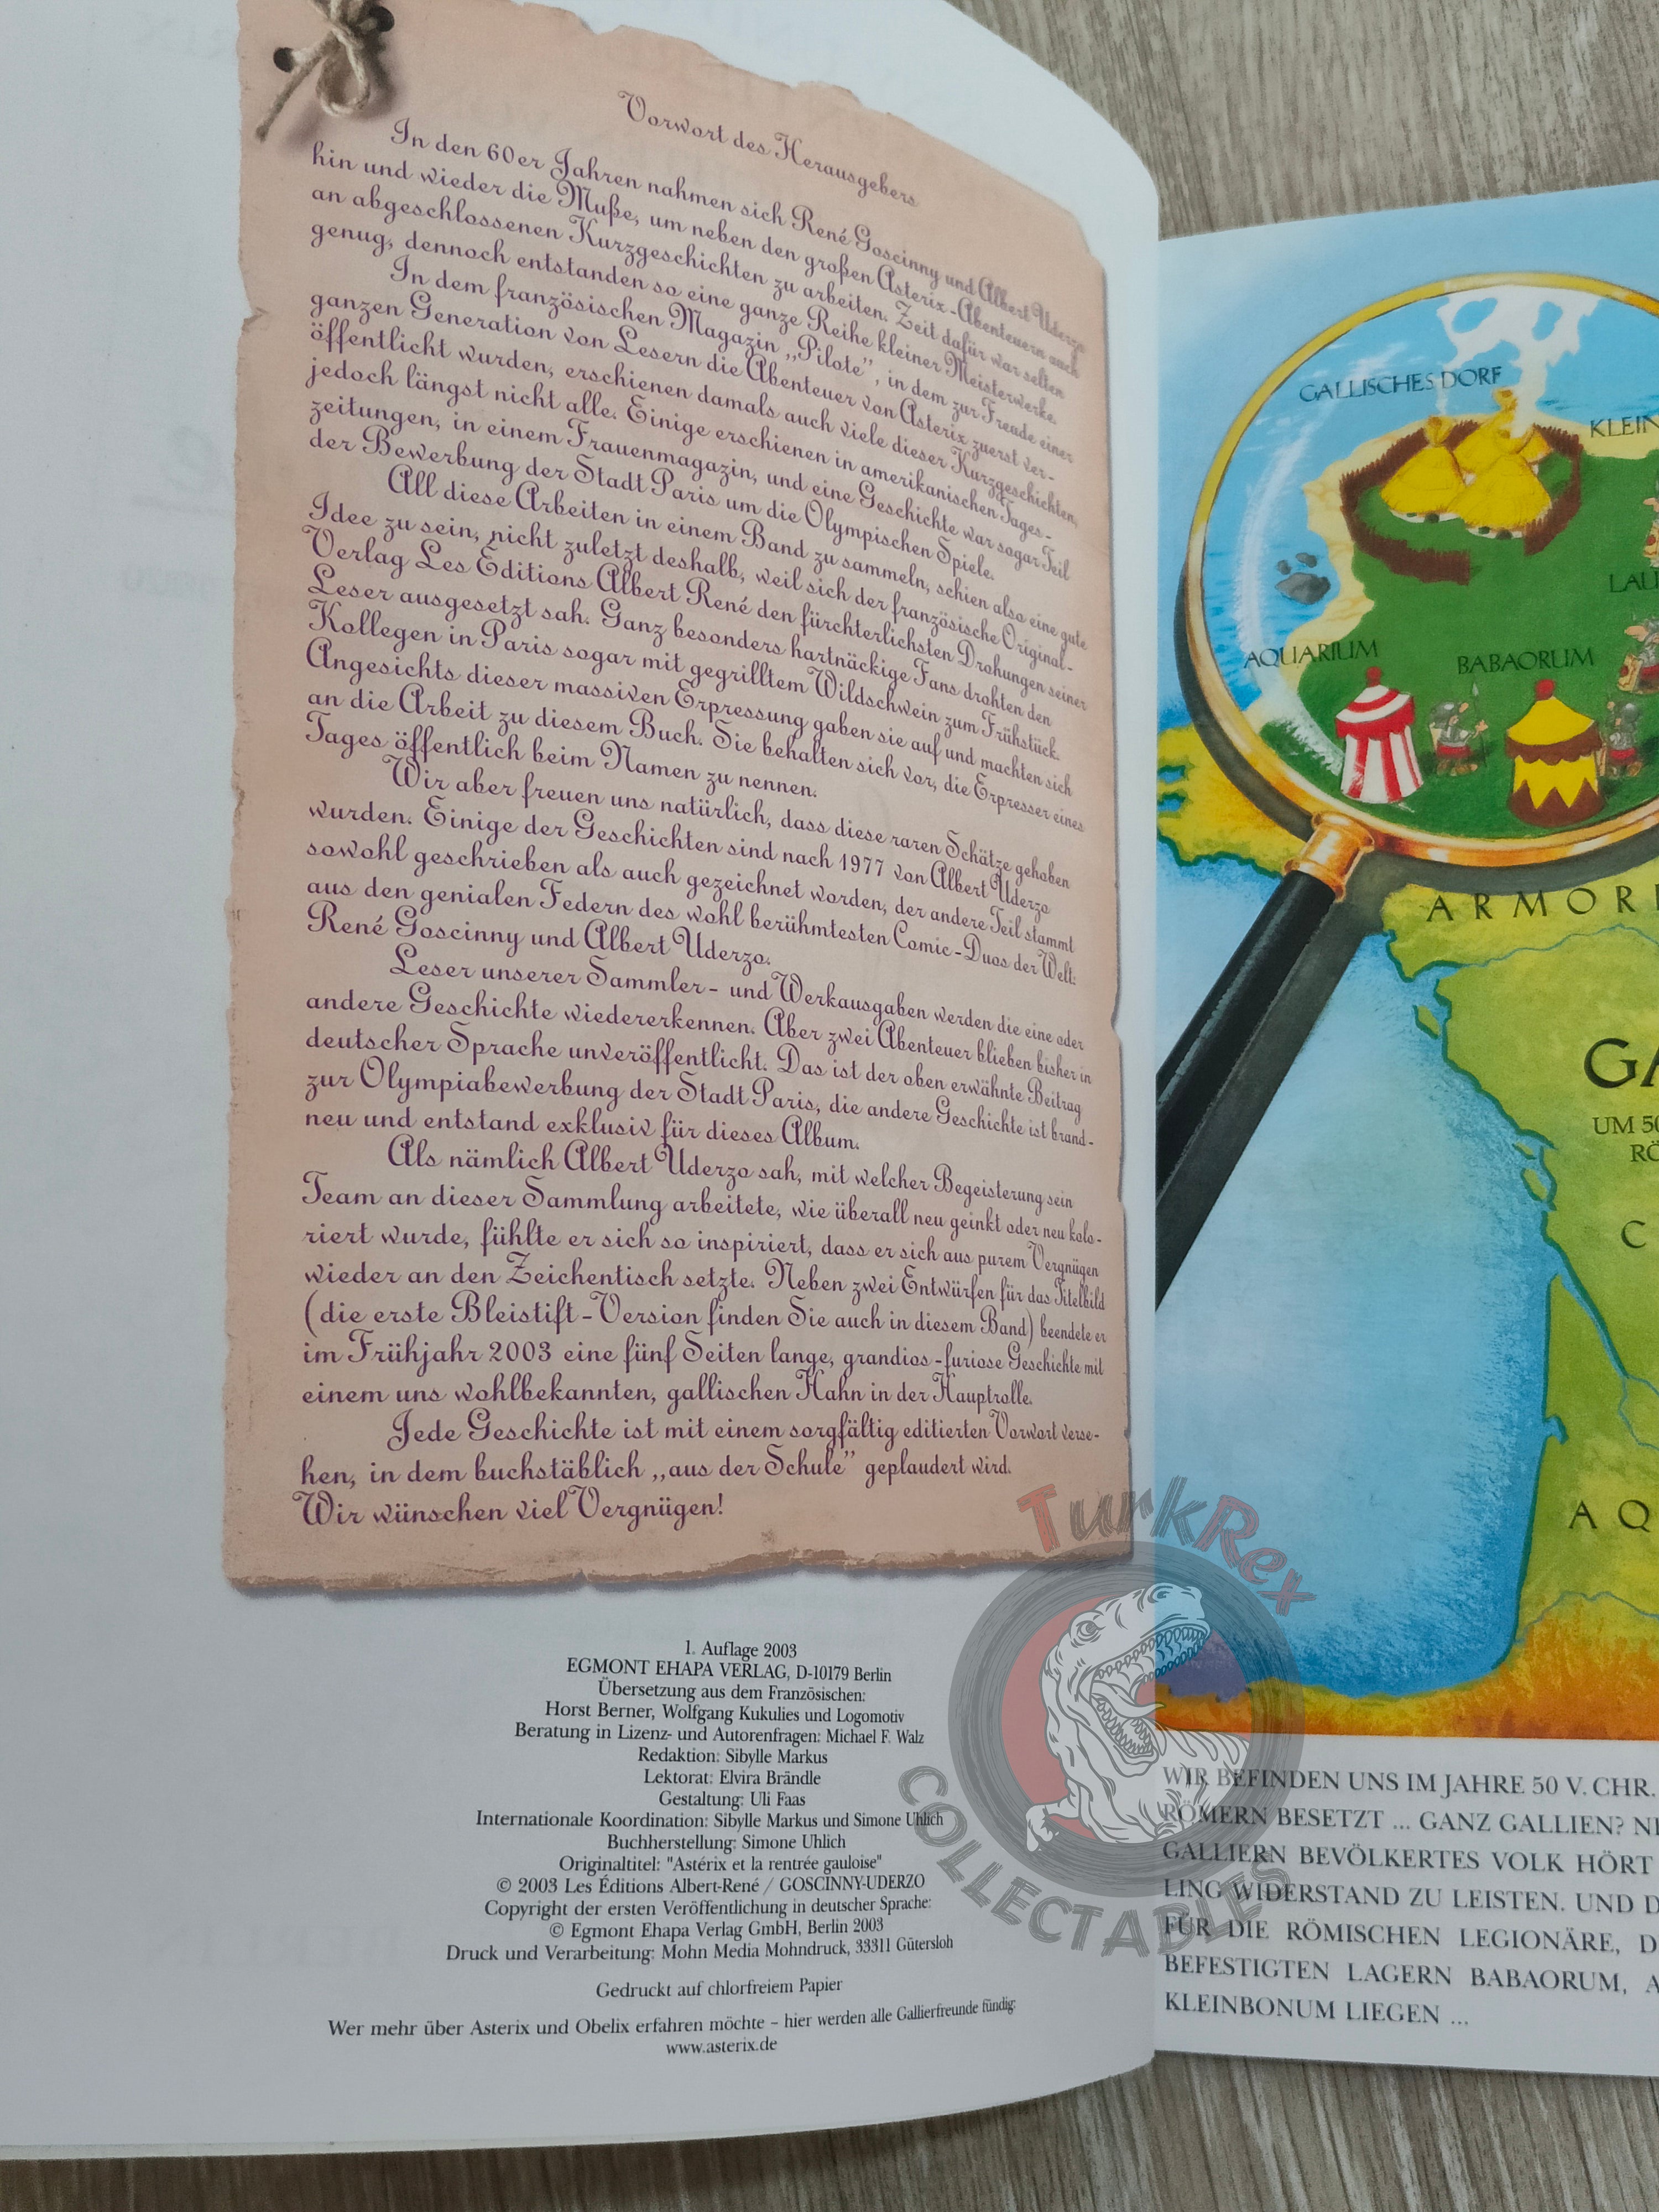 Vorwort des Herausgebers
In den 60er Jahren nahmen sich René Goscinny und Albert Uderzo
hin und wieder die Muße, um neben den großen Asterix-Abenteuern auch
an abgeschlossenen Kurzgeschichten zu arbeiten. Zeit dafür war selten
genug, dennoch entstanden so eine ganze Reihe kleiner Meisterwerke.
In dem französischen Magazin „Pilote”, in dem zur Freude einer
ganzen Generation von Lesern die Abenteuer von Asterix zuerst ver-
öffentlicht wurden, erschienen damals auch viele dieser Kurzgeschichten,
jedoch längst nicht alle. Einige erschienen in amerikanischen Tages-
zeitungen, in einem Frauenmagazin, und eine Geschichte war sogar Teil
der Bewerbung der Stadt Paris um die Olympischen Spiele.
All diese Arbeiten in einem Band zu sammeln, schien also eine gute
Idee zu sein, nicht zuletzt deshalb, weil sich der französische Original-
Verlag Les Éditions Albert René den fürchterlichsten Drohungen seiner
Leser ausgesetzt sah. Ganz besonders hartnäckige Fans drohten den
Kollegen in Paris sogar mit gegrilltem Wildschwein zum Frühstück.
Angesichts dieser massiven Erpressung gaben sie auf und machten sich
an die Arbeit zu diesem Buch. Sie behalten sich vor, die Erpresser eines
Tages öffentlich beim Namen zu nennen.
Wir aber freuen uns natürlich, dass diese raren Schätze gehoben
wurden. Einige der Geschichten sind nach 1977 von Albert Uderzo
sowohl geschrieben als auch gezeichnet worden, der andere Teil stammt
aus den genialen Federn des wohl berühmtesten Comic-Duos der Welt:
René Goscinny und Albert Uderzo.
Leser unserer Sammler- und Werkausgaben werden die eine oder
andere Geschichte wiedererkennen. Aber zwei Abenteuer blieben bisher in
deutscher Sprache unveröffentlicht. Das ist der oben erwähnte Beitrag
zur Olympiabewerbung der Stadt Paris, die andere Geschichte ist brand-
neu und entstand exklusiv für dieses Album.
Als nämlich Albert Uderzo sah, mit welcher Begeisterung sein
Team an dieser Sammlung arbeitete, wie überall neu geinkt oder neu kolo-
riert wurde, fühlte er sich so inspiriert, dass er sich aus purem Vergnügen
wieder an den Zeichentisch setzte. Neben zwei Entwürfen für das Titelbild
(die erste Bleistift-Version finden Sie auch in diesem Band) beendete er
im Frühjahr 2003 eine fünf Seiten lange, grandios-furiose Geschichte mit
einem uns wohlbekannten, gallischen Hahn in der Hauptrolle.
Jede Geschichte ist mit einem sorgfältig editierten Vorwort verse-
hen, in dem buchstäblich „aus der Schule” geplaudert wird.
Wir wünschen viel Vergnügen!
1. Auflage 2003
EGMONT EHAPA VERLAG, D-10179 Berlin
Übersetzung aus dem Französischen:
Horst Berner, Wolfgang Kukulies und Logomotiv
Beratung in Lizenz- und Autorenfragen: Michael F. Walz
Redaktion: Sibylle Markus
Lektorat: Elvira Brändle
Gestaltung: Uli Faas
Internationale Koordination: Sibylle Markus und Simone Uhlich
Buchherstellung: Simone Uhlich
Originaltitel: "Astérix et la rentrée gauloise"
© 2003 Les Éditions Albert-René / GOSCINNY-UDERZO
Copyright der ersten Veröffentlichung in deutscher Sprache:
© Egmont Ehapa Verlag GmbH, Berlin 2003
Druck und Verarbeitung: Mohn Media Mohndruck, 33311 Gütersloh
Gedruckt auf chlorfreiem Papier
Wer mehr über Asterix und Obelix erfahren möchte – hier werden alle Gallierfreunde fündig:
www.asterix.de
GALLISCHES DORF
KLEIN
LAU
AQUARIUM
BABAORUM
ARMOR
GA
UM 50
RÖ
C
AQ
WIR BEFINDEN UNS IM JAHRE 50 V. CHR.
RÖMERN BESETZT ... GANZ GALLIEN? N
GALLIERN BEVÖLKERTES VOLK HÖRT
LING WIDERSTAND ZU LEISTEN. UND D
FÜR DIE RÖMISCHEN LEGIONÄRE, D
BEFESTIGTEN LAGERN BABAORUM, A
KLEINBONUM LIEGEN ...
TurkRex
COLLECTABLES